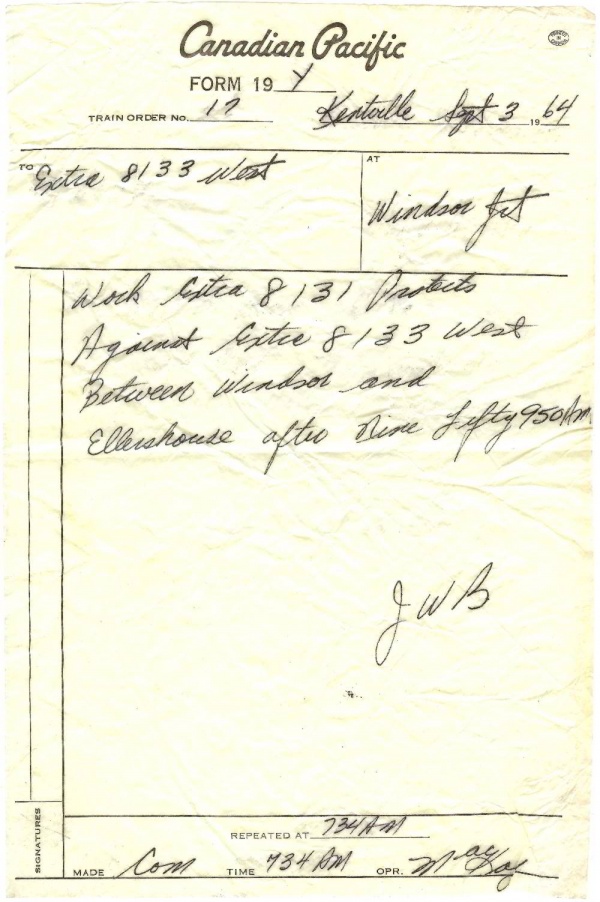 Canadian Pacific
FORM 19 Y
TRAIN ORDER No. 17 Kentville Sept 3 1964
TO Extra 8133 West
AT Windsor Jct
Work Extra 8131 Protects
Against Extra 8133 West
Between Windsor and
Ellershouse after Nine Fifty 950 AM
JWB
SIGNATURES
REPEATED AT 734 AM
MADE Com TIME 734 AM OPR. MacKay